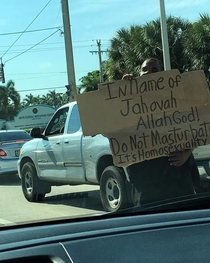 In Name of
Jahovah
Allah God!
Do Not Masturbat
It's Homosexuality